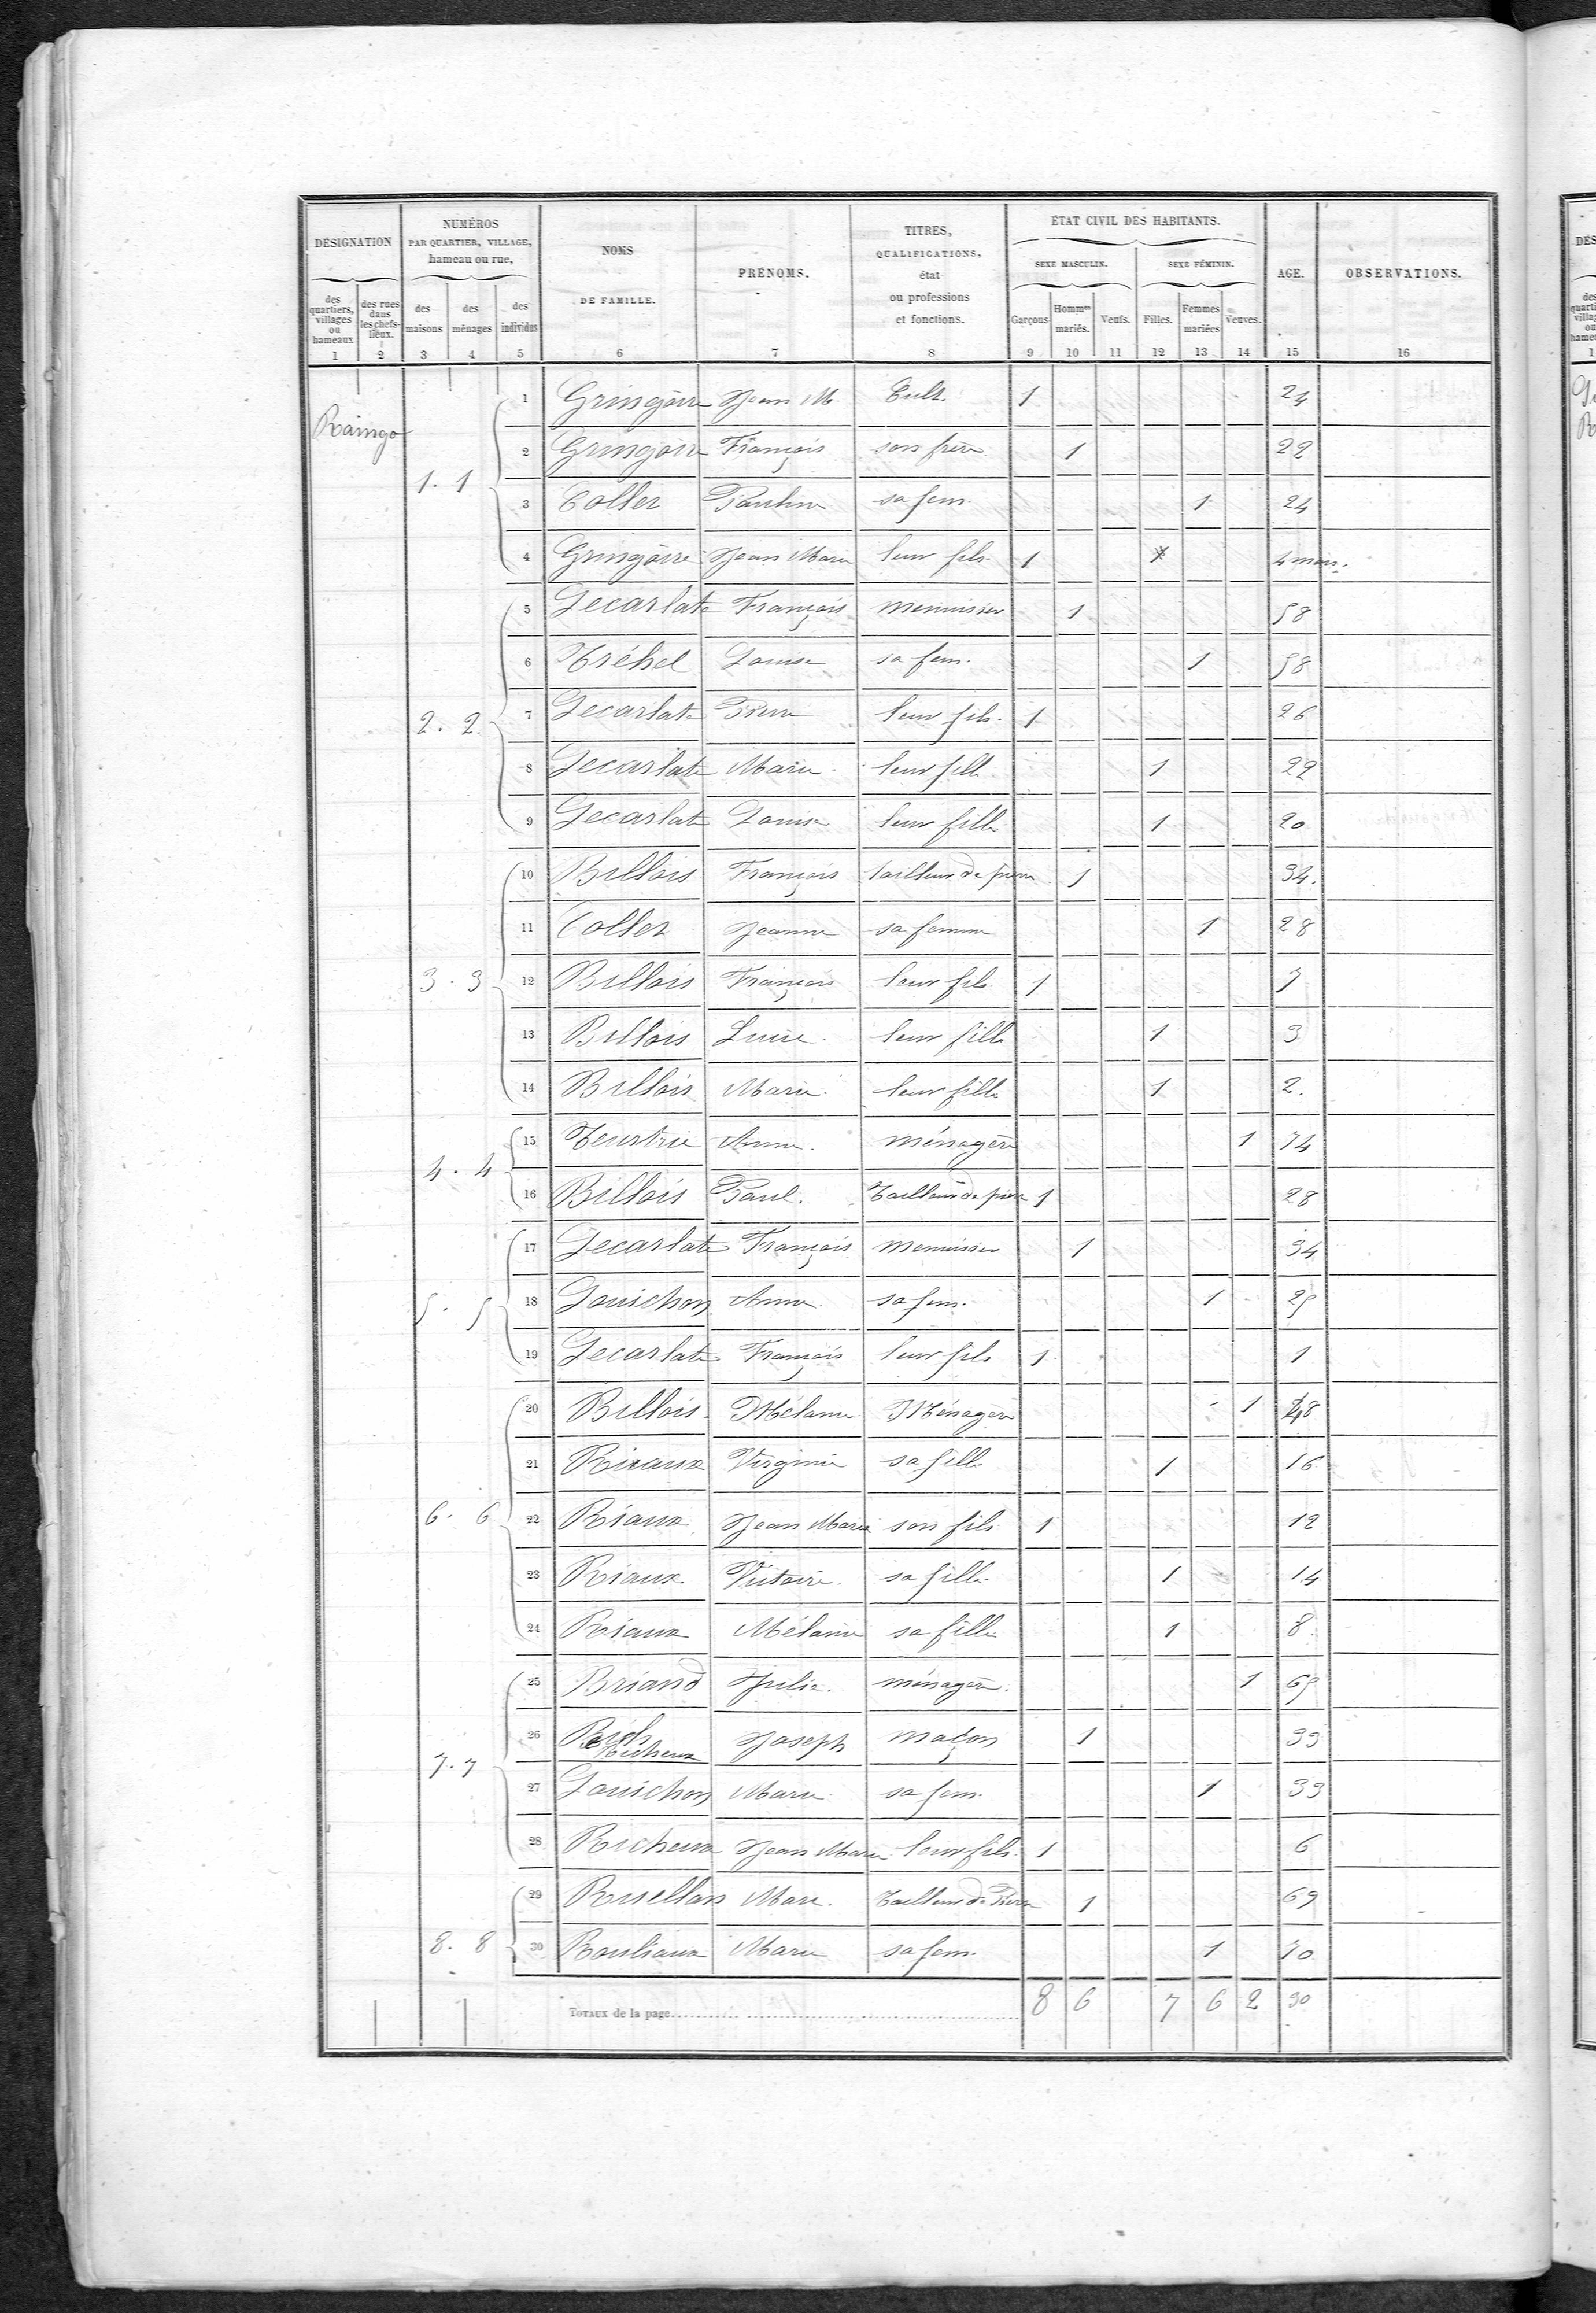 DÉSIGNATION
NUMÉROS
PAR QUARTIER, VILLAGE,
hameau ou rue,
NOMS
DE FAMILLE.
PRÉNOMS.
TITRES,
QUALIFICATIONS,
état
ou professions
et fonctions.
ÉTAT CIVIL DES HABITANTS.
SEXE MASCULIN. SEXE FÉMININ.
AGE.
OBSERVATIONS.
des quartiers, villages ou hameaux
des rues dans les chefs-lieux.
des maisons
des ménages
des individus
Garçons Hommes mariés. Veufs. Filles. Femmes mariées Veuves.
1 2 3 4 5 6 7 8 9 10 11 12 13 14 15 16
Raingo
1. 1
1 Gringoire Jean M. Cult. 1 24
2 Gringoire François son frère 1 22
3 Collet Pauline sa fem. 1 24
4 Gringoire Jean Marie leur fils 1 4 mois.
2. 2
5 Lecarlate François menuisier 1 58
6 Tréhel Louise sa fem. 1 58
7 Lecarlate Pierre leur fils. 1 26
8 Lecarlate Marie leur fille 1 22
9 Lecarlate Louise leur fille 1 20
3. 3
10 Billois François tailleur de pierre 1 34.
11 Collet Jeanne sa femme 1 28
12 Billois François leur fils 1 7
13 Billois leur fille 1 3
14 Billois Marie. leur fille 1 2.
4. 4
15 Anne. ménagère 1 74
16 Billois Paul. Tailleur de pierre 1 28
5. 5
17 Lecarlate François menuisier 1 34
18 Louichon Anne sa fem. 1 25
19 Lecarlate François leur fils 1 1
6. 6
20 Billois. Mélanie Ménagère 1 48
21 Riraux Virginie sa fille 1 16
22 Riaux Jean Marie son fils 1 12
23 Riaux Victoire. sa fille 1 14
24 Riaux Mélanie sa fille 1 8
7. 7
25 Briand Julie. ménagère. 1 65
26 Rich Richeux Joseph maçon 1 33
27 Louichon Marie sa fem. 1 33
28 Richeux Jean Marie leur fils. 1 6
8. 8
29 Marc. Tailleur de Pierre 1 69
30 Rouliaux Marie sa fem. 1 70
TOTAUX de la page 8 6 7 6 2 30